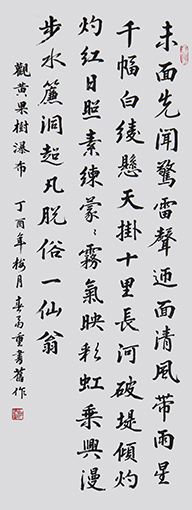 未面先聞驚雷聲迎面清風帶雨星
千幅白綾懸天掛十里長河破堤傾灼
灼紅日照素練蒙〻霧氣映彩虹乘興漫
步水簾洞超凡脱俗一仙翁
觀黄果樹瀑布 丁酉年梅月 重書舊作